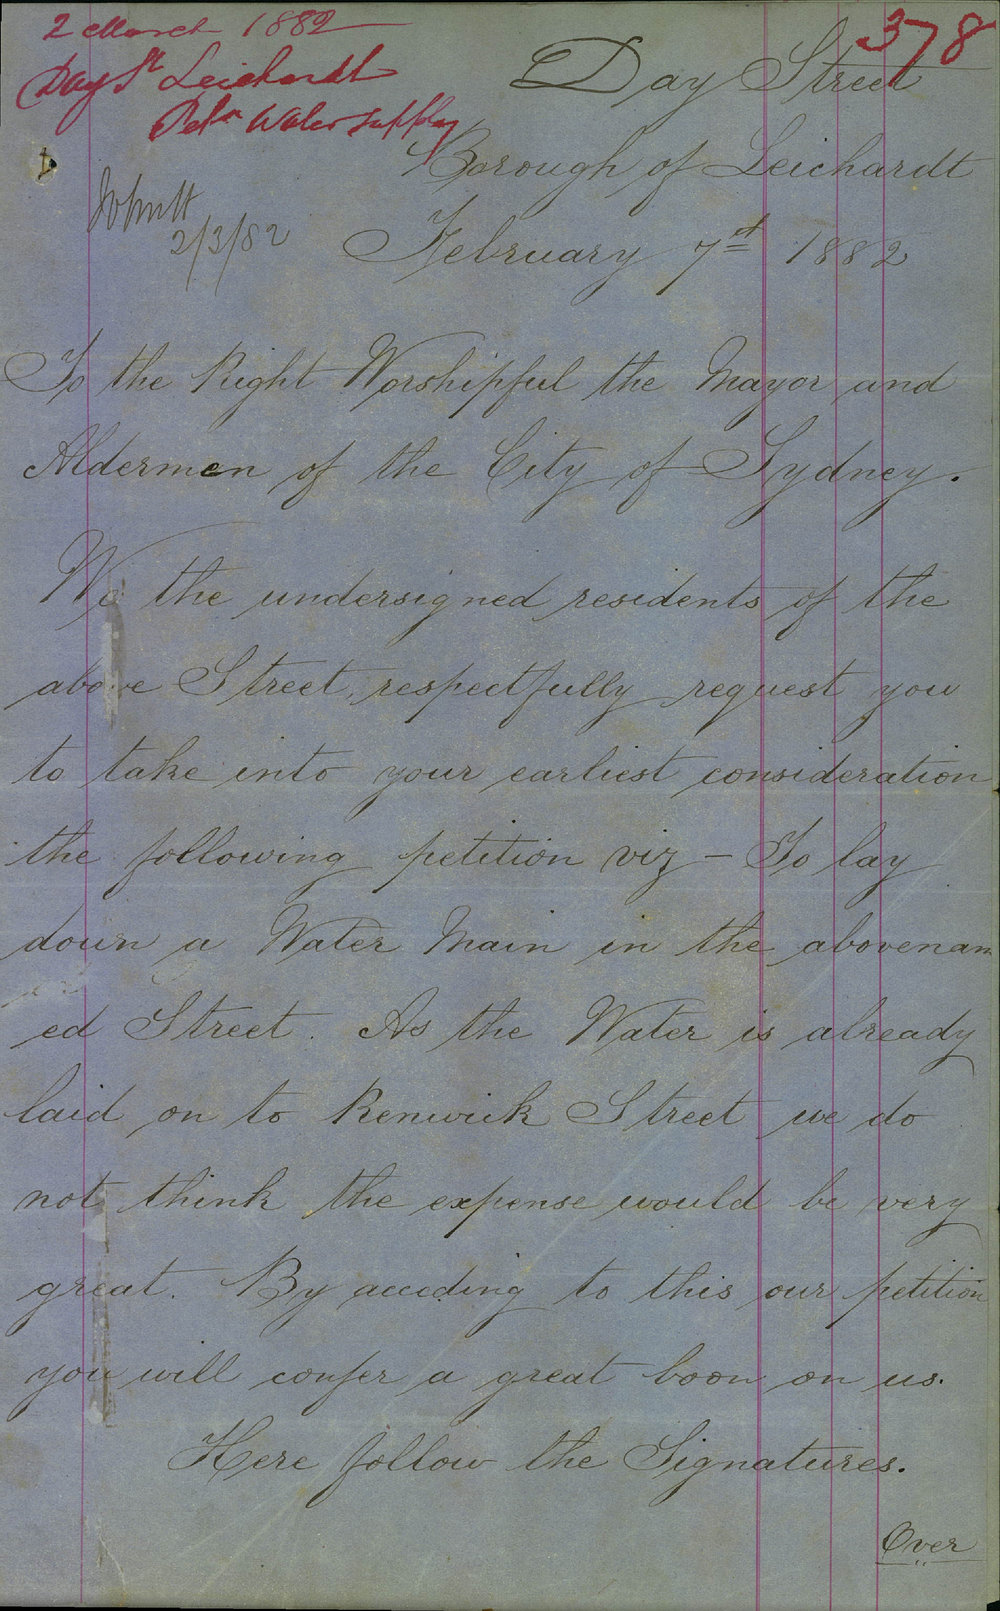 2 March 1882
Day St Leichardt
Petn Water supply
378
2/3/82
Day Street
Borough of Leichardt
February 7st 1882
To the Right Worshipful the Mayor and
Aldermen of the City of Sydney.
We the undersigned residents of the
above Street, respectfully request you
to take into your earliest consideration
the following petition viz - To lay
down a Water Main in the abovenam
ed Street. As the Water is already
laid on to Renwick Street we do
not think the expense would be very
great. By acceding to this our petition
you will confer a great boon on us.
Here follow the Signatures.
Over